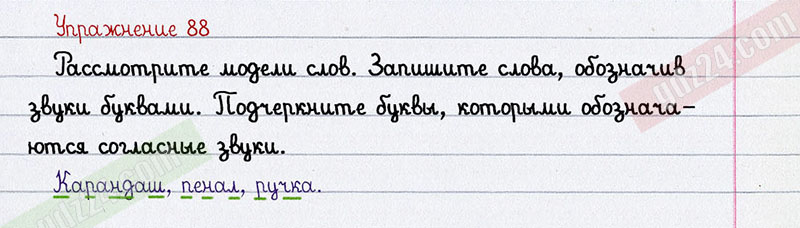 Упражнение 88
Рассмотрите модели слов. Запишите слова, обозначив
звуки буквами. Подчеркните буквы, которыми обознача-
ются согласные звуки.
Карандаш, пенал, ручка.